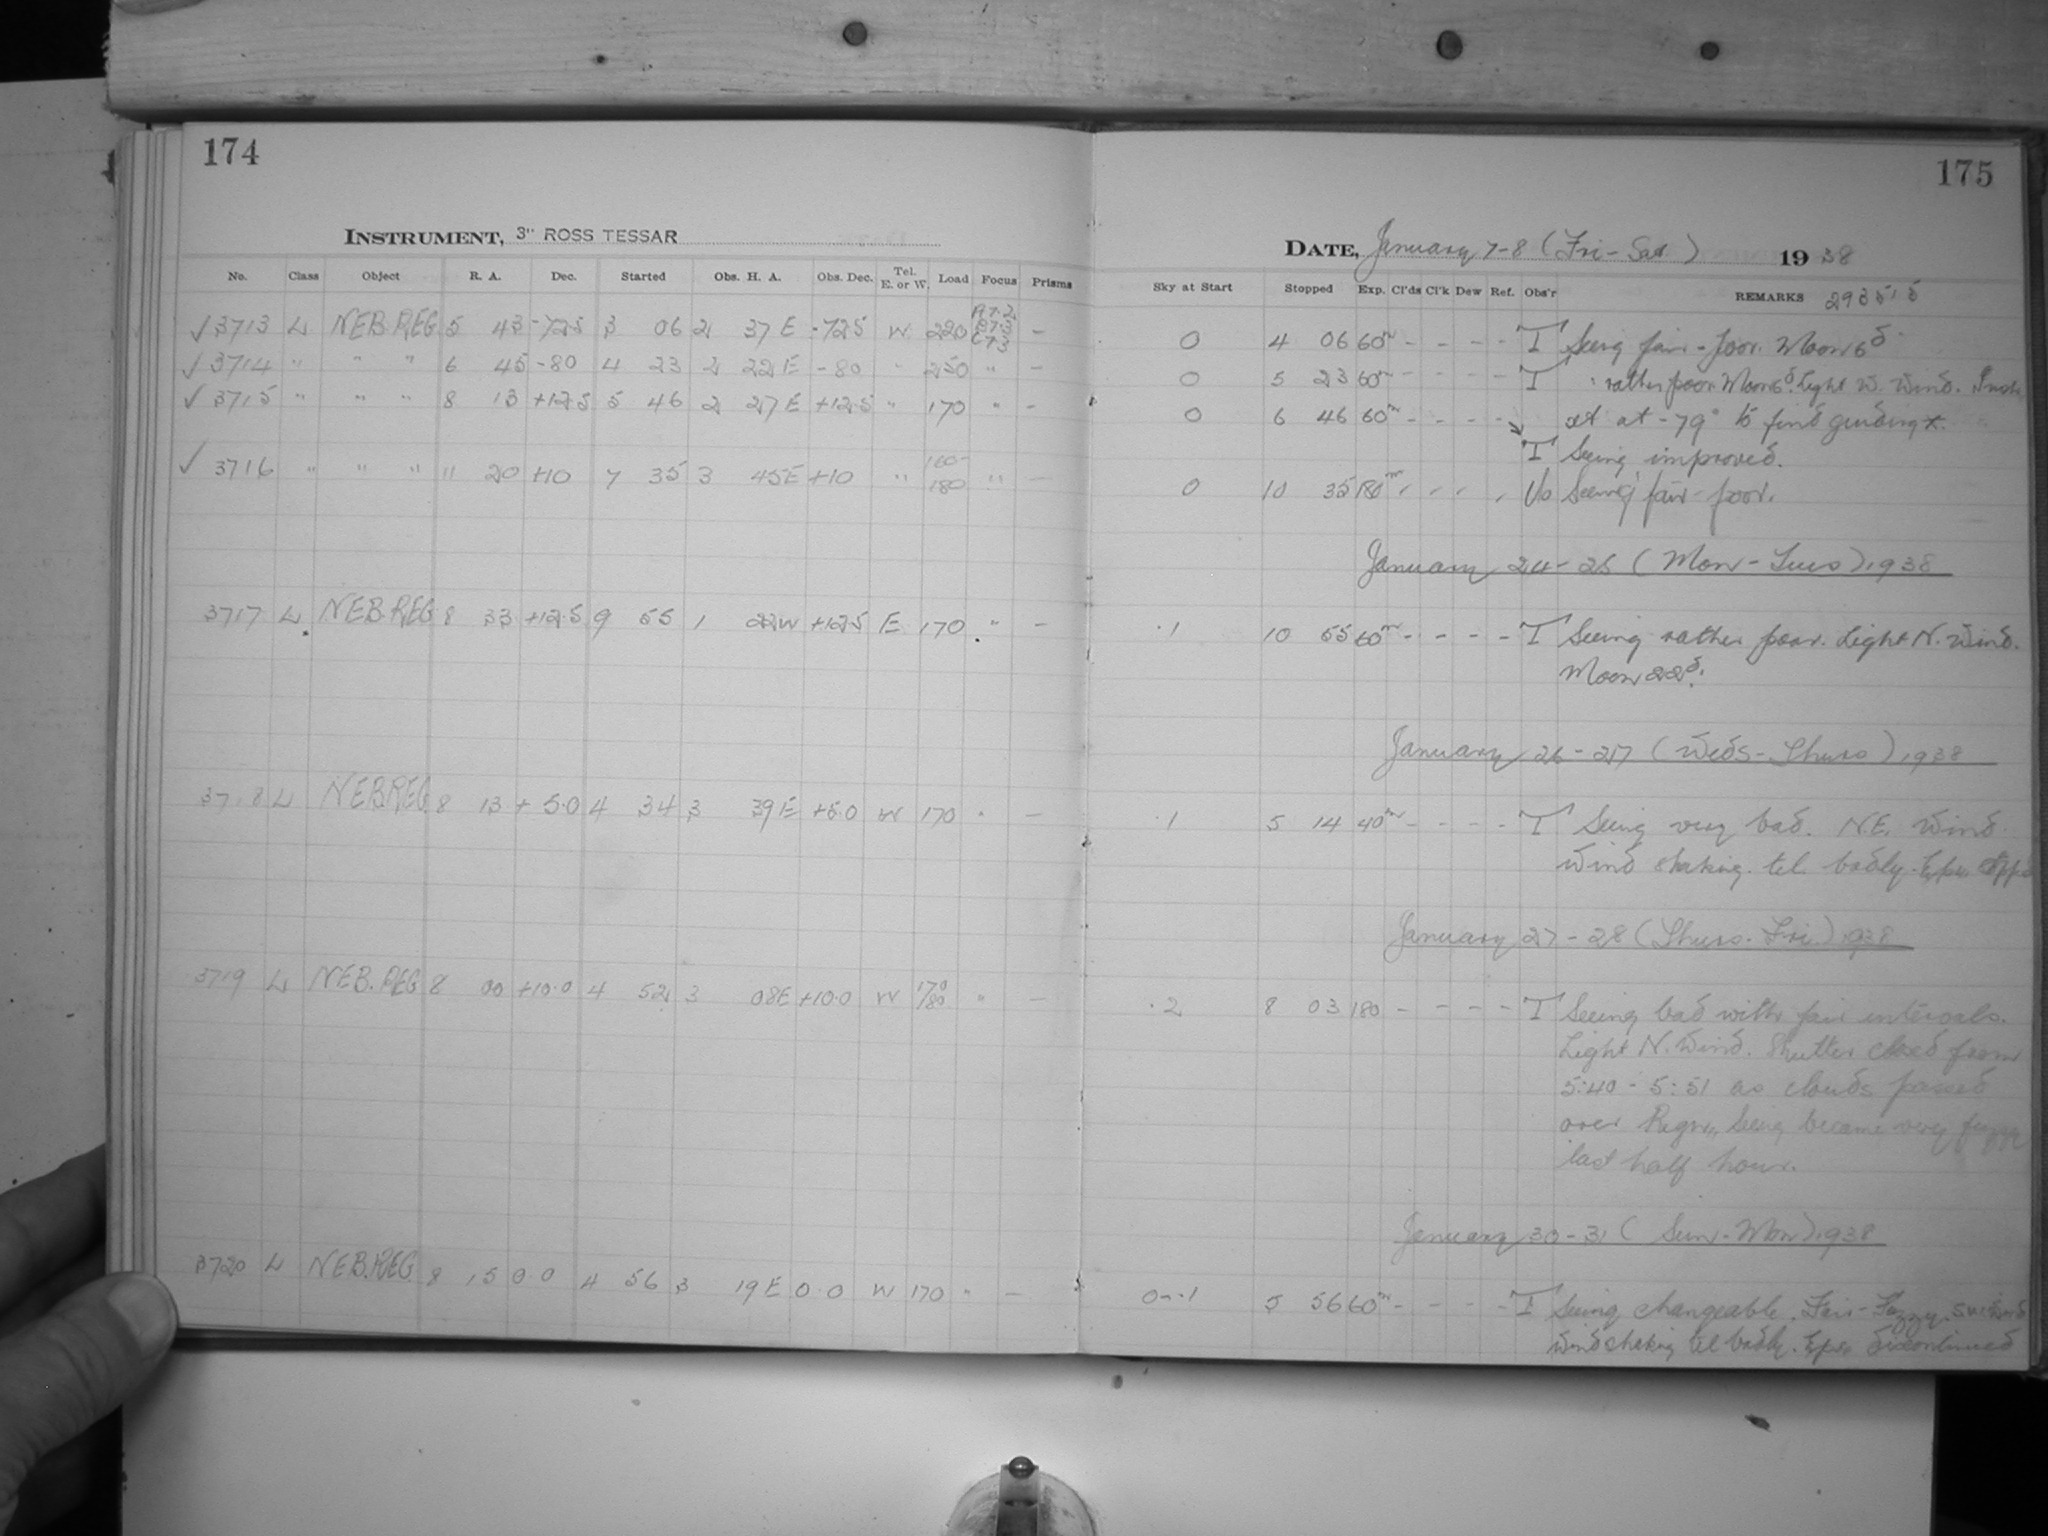 174
INSTRUMENT, 3" ROSS TESSAR
No. Class Object R. A. Dec. Started Obs. H. A. Obs. Dec. Tel. E. or W. Load Focus Prisms
✓3713 L NEB.REG. 5 43 -72.5 3 06 2 37 E -72.5 W 220 A7.2 B7.3 C7.3 -
✓3714 " " " 6 45 -80 4 23 2 22 E -80 " 250 " -
✓3715 " " " 8 13 +12.5 5 46 2 27 E +12.5 " 170 " -
✓3716 " " " 11 20 +10 7 35 3 45E +10 " 160- 180 " -
3717 L NEB.REG. 8 33 +12.5 9 55 1 22W +12.5 E 170 " -
3718 L NEB.REG. 8 13 +5.0 4 34 3 39E +5.0 W 170 " -
3719 L NEB.REG 8 00 +10.0 4 52 3 08E +10.0 W 170 180 " -
3720 L NEB.REG. 8 15 0.0 4 56 3 19 E 0.0 W 170 " -
175
DATE, January 7-8 (Fri-Sat) 1938
Sky at Start Stopped Exp. Cl'ds Cl'k Dew Ref. Obs'r REMARKS 29351.5
0 4 06 60m - - - - T Seeing fair-poor. Moon 6d
0 5 23 60m - - - - T " rather poor. Moon 6d. Light W. Wind.
0 6 46 60m - - - - set at -79° to find guiding *.
T Seeing improved.
0 10 35 180m - - - - Vo Seeing fair-poor.
January 24-25 (Mon-Tues) 1938
.1 10 55 60m - - - - T Seeing rather poor. Light N. Wind.
Moon 22d.
January 26-27 (Weds-Thurs) 1938
.1 5 14 40m - - - - T Seeing very bad. N.E. Wind
Wind shaking tel. badly. Expo. stppd
January 27-28 (Thurs-Fri.) 1938
.2 8 03 180 - - - - T Seeing bad with fair intervals.
Light N. Wind. Shutter closed from
5:40 - 5:51 as clouds passed
over Region. Seeing became very fuzzy
last half hour.
January 30-31 (Sun-Mon) 1938
0-.1 5 56 60m - - - - T Seeing changeable. Fair-Fuzzy. S.W. Wind
Wind shaking tel badly. Expo discontinued